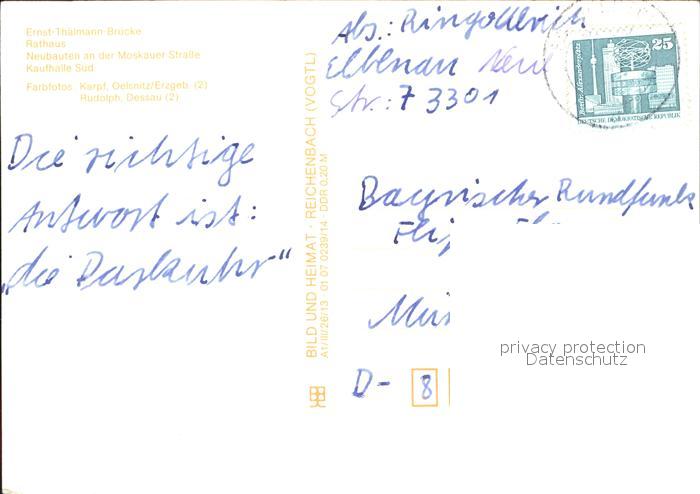 Ernst-Thälmann-Brücke
Rathaus
Neubauten an der Moskauer Straße
Kaufhalle Süd
Farbfotos: Karpf, Oelsnitz/Erzgeb. (2)
Rudolph, Dessau (2)
Die richtige
Antwort ist:
„die Parkuhr"
BILD UND HEIMAT · REICHENBACH (VOGTL)
A1/III/26/13 01 07 0239/14 · DDR 0,20 M
Abs.:
Elbenau Neue
Str.: 7 3301
25
Berlin, Alexanderplatz
DEUTSCHE DEMOKRATISCHE REPUBLIK
Bayrischer Rundfunk
D- 8
privacy protection
Datenschutz